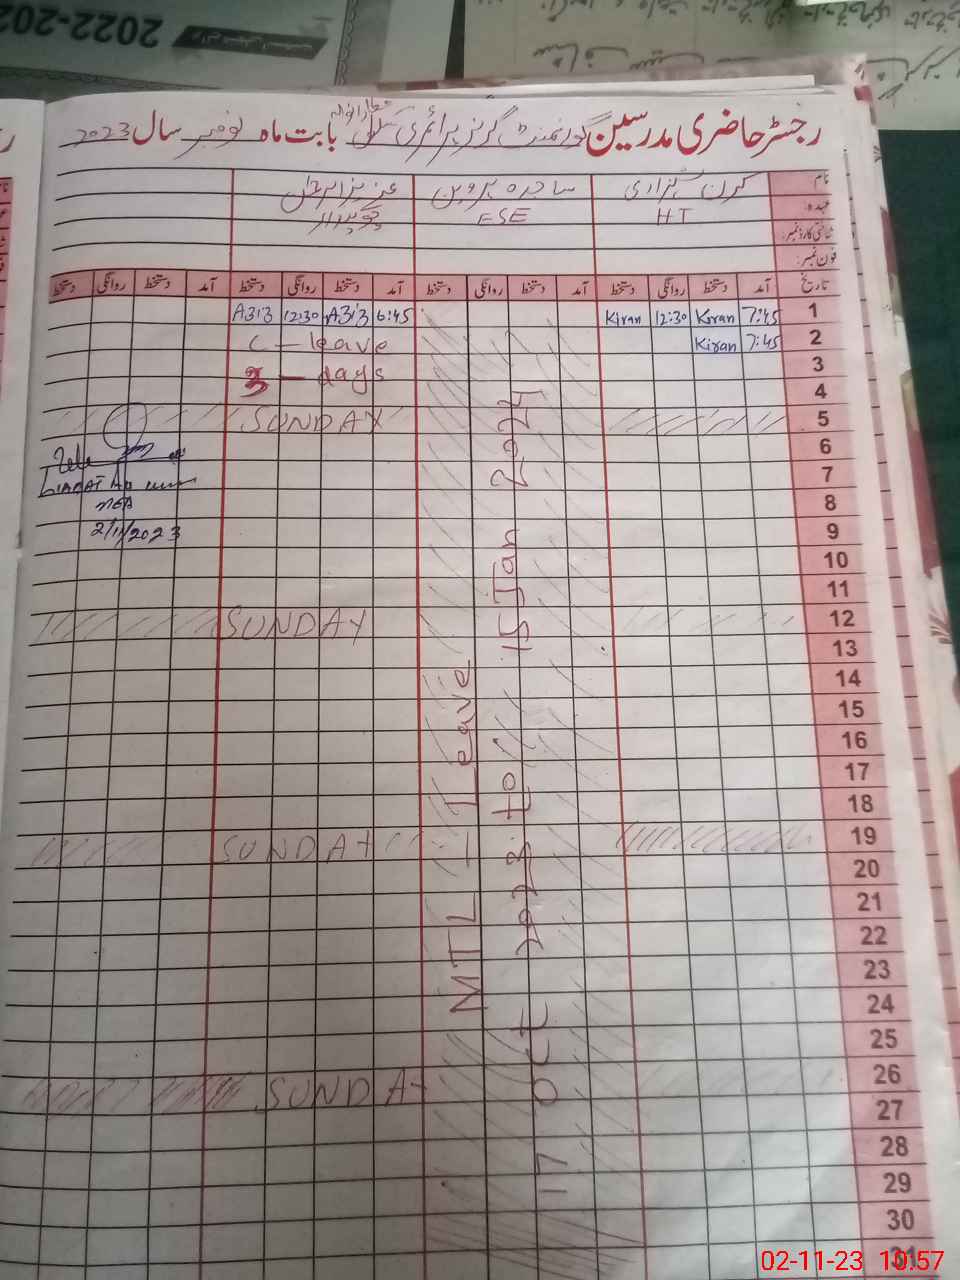 2022-202
رجسٹر حاضری مدرسین گورنمنٹ گرلز پرائمری سکول بابت ماہ نومبر سال 2023
نام کرن شہزادی ساجدہ پروین
عہدہ: HT ESE چوکیدار
شناختی کارڈ نمبر:
فون نمبر:
تاریخ آمد دستخط روانگی دستخط آمد دستخط روانگی دستخط آمد دستخط روانگی دستخط آمد دستخط روانگی دستخط
1 7:45 Kiran 12:30 Kiran 6:45 A3i3 12:30 A3i3
2 7:45 Kiran C - leave
3 3 - days
4
5 SUNDAY
6
7
8
9 2/11/2023
10
11
12 SUNDAY
13
14
15
16
17
18
19 SUNDAY
20
21
22
23
24
25
26 SUNDAY
27
28
29
30
31
MTL - Leave
17 Oct 2023 to 15 Jan 2024
02-11-23 10:57